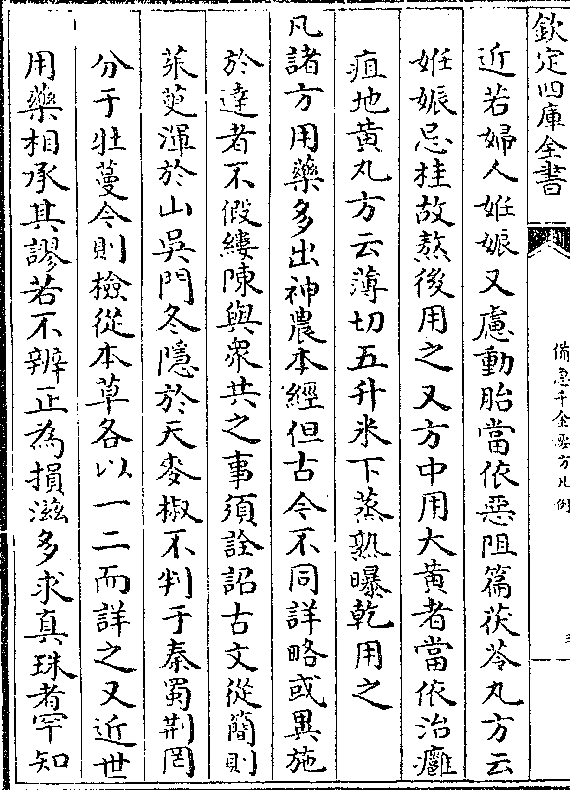 欽定四庫全書
備急千金要方凡例
近若婦人妊娠又慮動胎當依惡阻篇茯苓丸方云
妊娠忌桂故熬後用之又方中用大黄者當依治癰
疽地黄丸方云薄切五升米下蒸熟曝乾用之
凡諸方用藥多出神農本經但古今不同詳略或異施
於達者不假縷陳與衆共之事須詮詔古文從簡則
茱萸渾於山吳門冬隱於天麥椒不判于秦蜀荆罔
分于牡蔓今則檢從本草各以一二而詳之又近世
用藥相承其謬若不辨正為損滋多求真珠者罕知